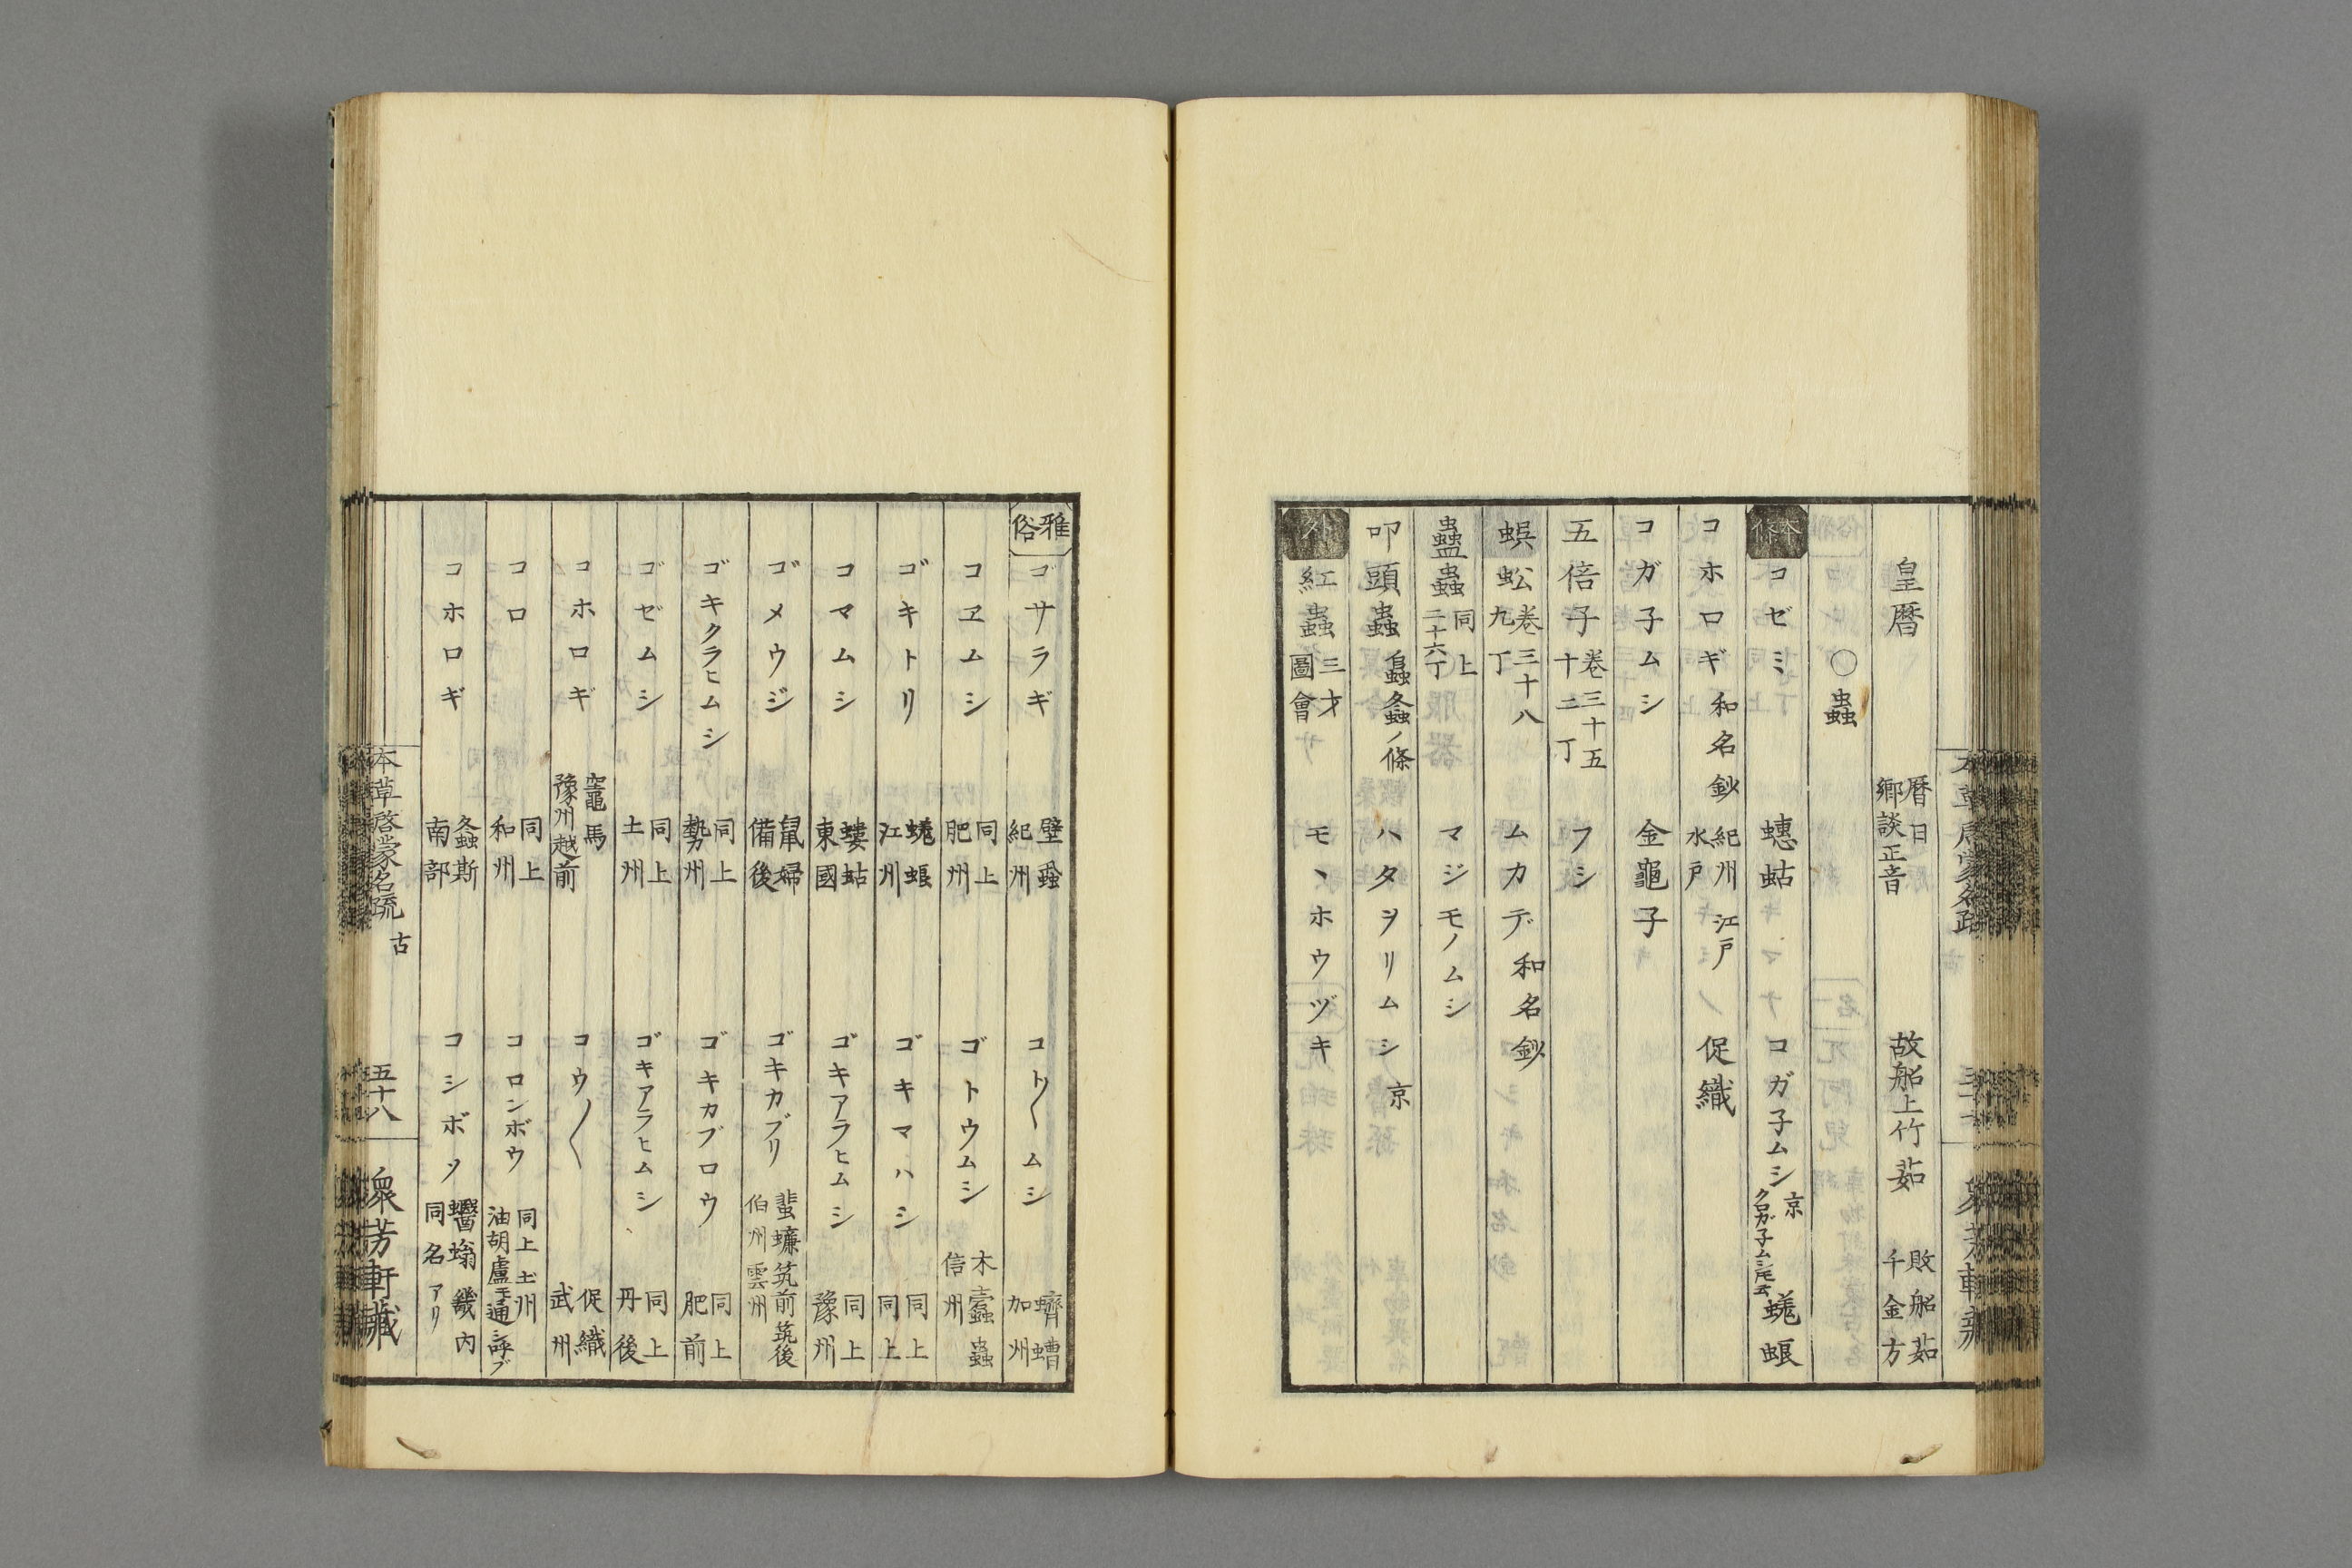 皇暦 暦日 郷談正音 故船上竹茹 敗船茹 千金方
〇蟲
本條 コゼミ 蟪蛄 コガ子ムシ 京 クロガ子ムシ 蜣蜋
コホロギ 和名鈔 紀州 江戸 水戸 促織
コガ子ムシ 金龜子
五倍子 巻三十五 十二丁 フシ
蜈蚣 巻三十八 九丁 ムカデ 和名鈔
蠱蟲 同上 二十六丁 マジモノムシ
叩頭蟲 螽ノ條 ハタヲリムシ 京
外 紅蟲 三才圖會 モヽホウヅキ
雅俗 ゴサラギ 壁蝨 紀州 コト〱ムシ 蠐螬 加州
コヱムシ 同上 肥州 ゴトウムシ 木蠹蟲 信州
ゴキトリ 蜣蜋 江州 ゴキマハシ 同上 同上
コマムシ 螻蛄 東國 ゴキアラヒムシ 同上 豫州
ゴメウジ 鼠婦 備後 ゴキカブリ 蜚蠊 筑前 筑後 伯州 雲州
ゴキクラヒムシ 同上 勢州 ゴキカブロウ 同上 肥前
ゴゼムシ 同上 土州 ゴキアラヒムシ 同上 丹後
コホロギ 竈馬 豫州 越前 コウ〱 促織 武州
コロ 同上 和州 コロンボウ 同上 土州 油胡盧モ通シ呼ブ
コホロギ 螽斯 南部 コシボソ 蠮螉 畿内 同名アリ
本草啓蒙名疏 古 五十八 衆芳軒藏